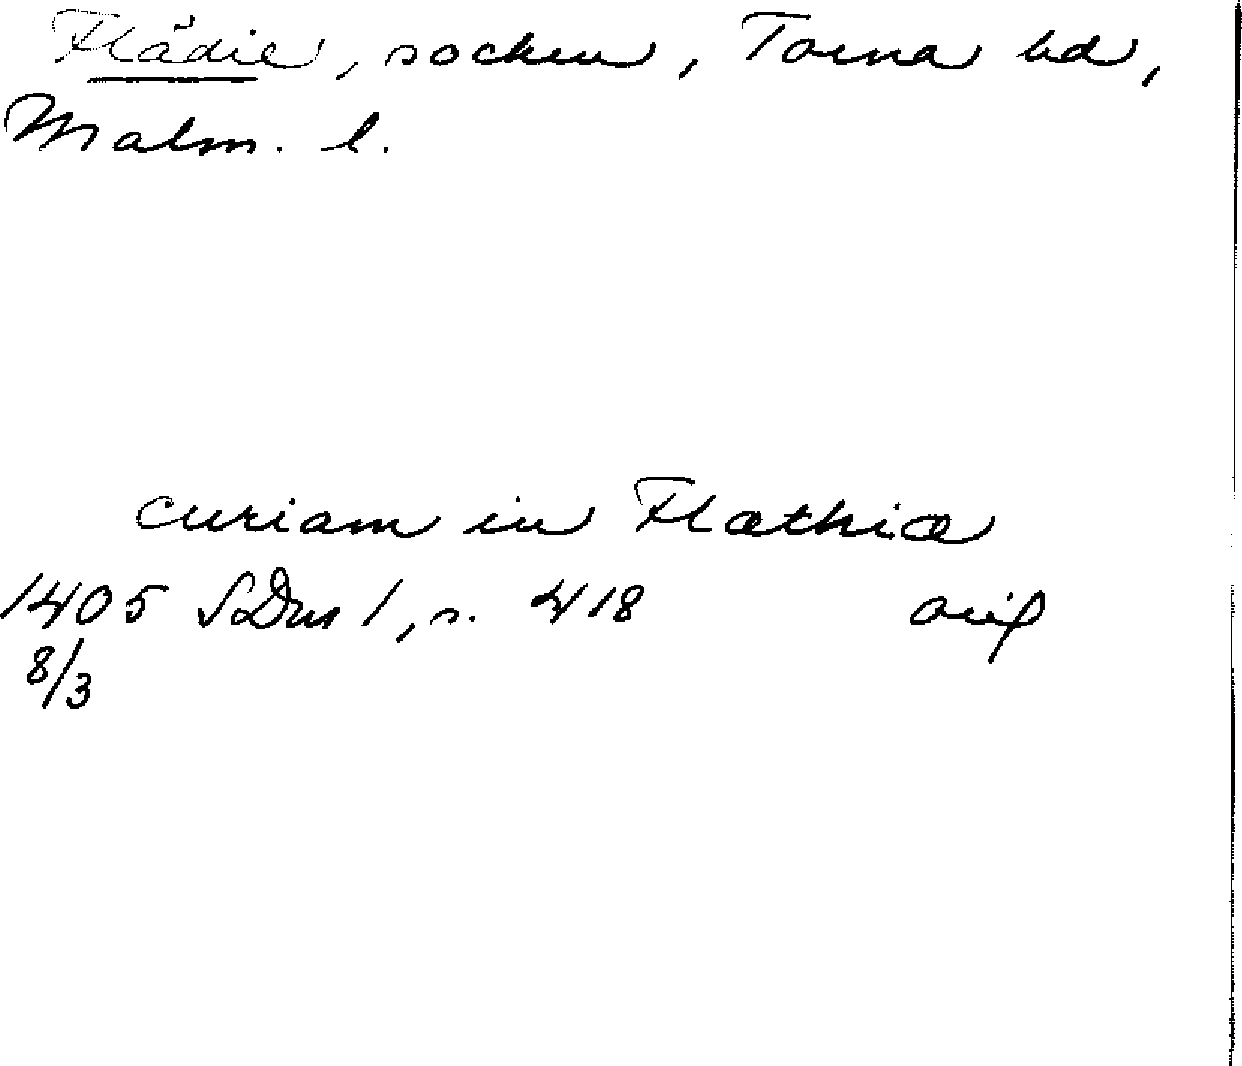 Flädie, socken, Torna hd,
Malm. l.
curiam in Flæthiæ
1405 SDns 1, s. 418 orig
8/3